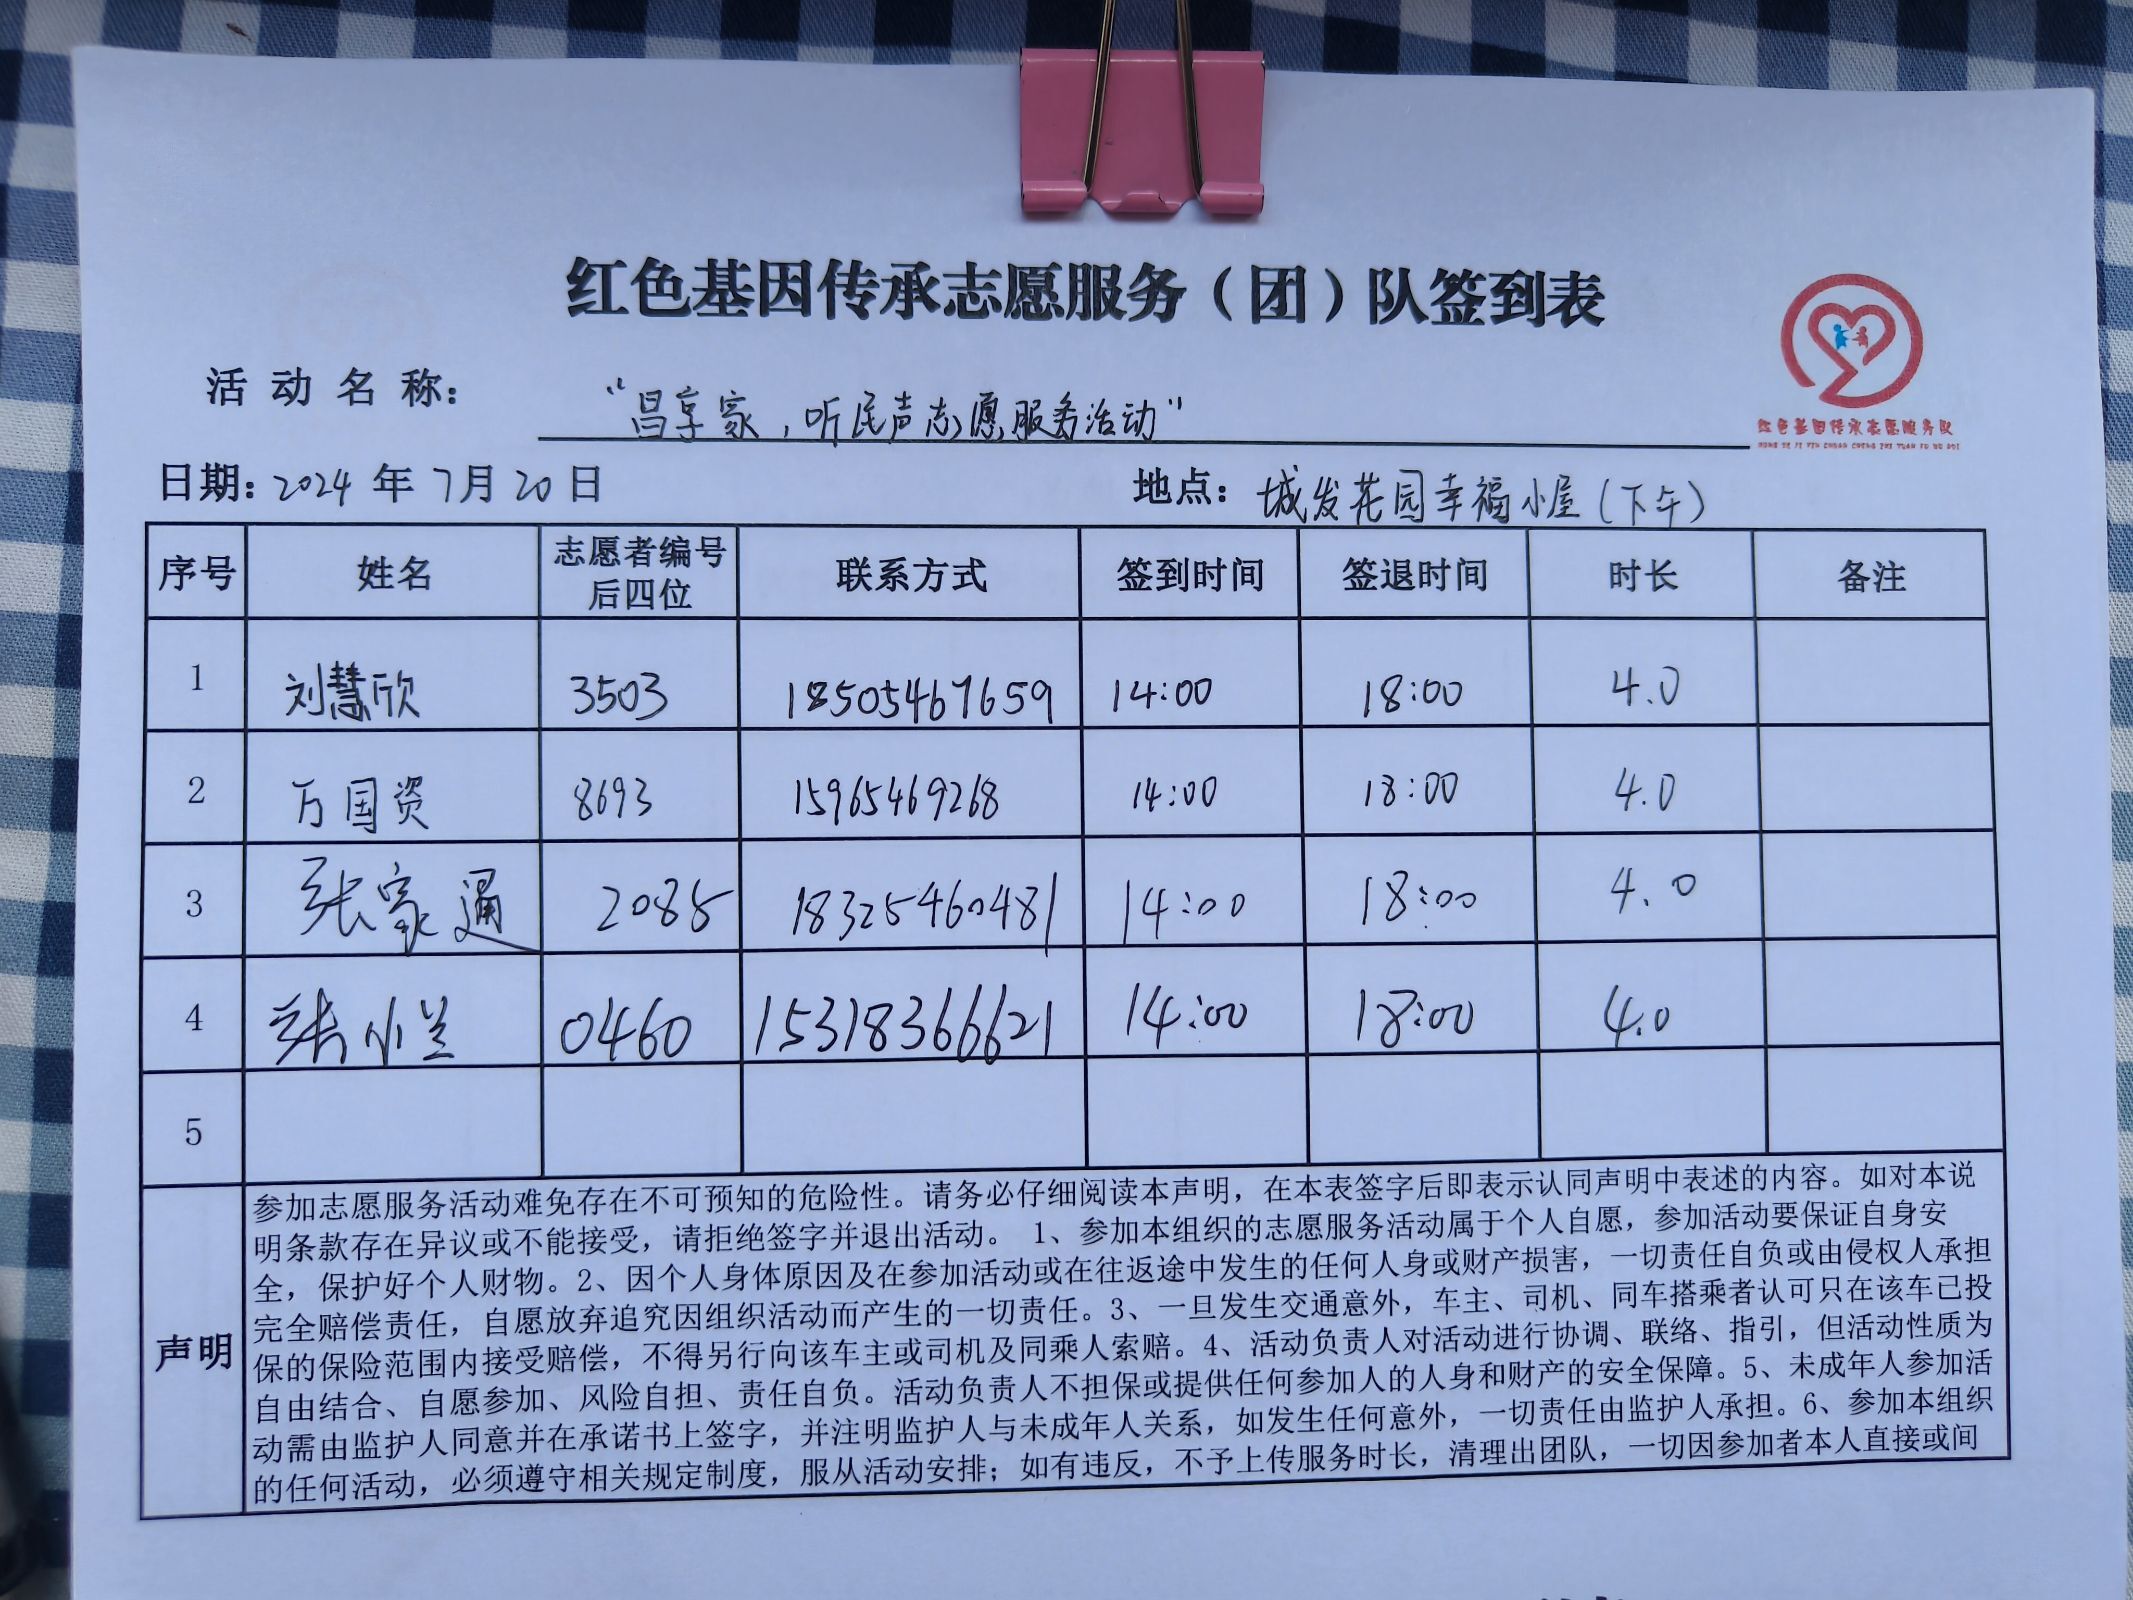 红色基因传承志愿服务（团）队签到表
红色基因传承志愿服务队
HONG SE JI YIN CHUAN CHENG ZHI YUAN FU WU DUI
活动名称： “昌享家，听民声志愿服务活动”
日期：2024年7月20日 地点：城发花园幸福小屋（下午）
序号 姓名 志愿者编号后四位 联系方式 签到时间 签退时间 时长 备注
1 刘慧欣 3503 18505467659 14:00 18:00 4.0
2 万国资 8693 15965469268 14:00 18:00 4.0
3 张家通 2085 18325460481 14:00 18:00 4.0
4 张小兰 0460 15318366621 14:00 18:00 4.0
5
声明
参加志愿服务活动难免存在不可预知的危险性。请务必仔细阅读本声明，在本表签字后即表示认同声明中表述的内容。如对本说
明条款存在异议或不能接受，请拒绝签字并退出活动。 1、参加本组织的志愿服务活动属于个人自愿，参加活动要保证自身安
全，保护好个人财物。2、因个人身体原因及在参加活动或在往返途中发生的任何人身或财产损害，一切责任自负或由侵权人承担
完全赔偿责任，自愿放弃追究因组织活动而产生的一切责任。3、一旦发生交通意外，车主、司机、同车搭乘者认可只在该车已投
保的保险范围内接受赔偿，不得另行向该车主或司机及同乘人索赔。4、活动负责人对活动进行协调、联络、指引，但活动性质为
自由结合、自愿参加、风险自担、责任自负。活动负责人不担保或提供任何参加人的人身和财产的安全保障。5、未成年人参加活
动需由监护人同意并在承诺书上签字，并注明监护人与未成年人关系，如发生任何意外，一切责任由监护人承担。6、参加本组织
的任何活动，必须遵守相关规定制度，服从活动安排；如有违反，不予上传服务时长，清理出团队，一切因参加者本人直接或间